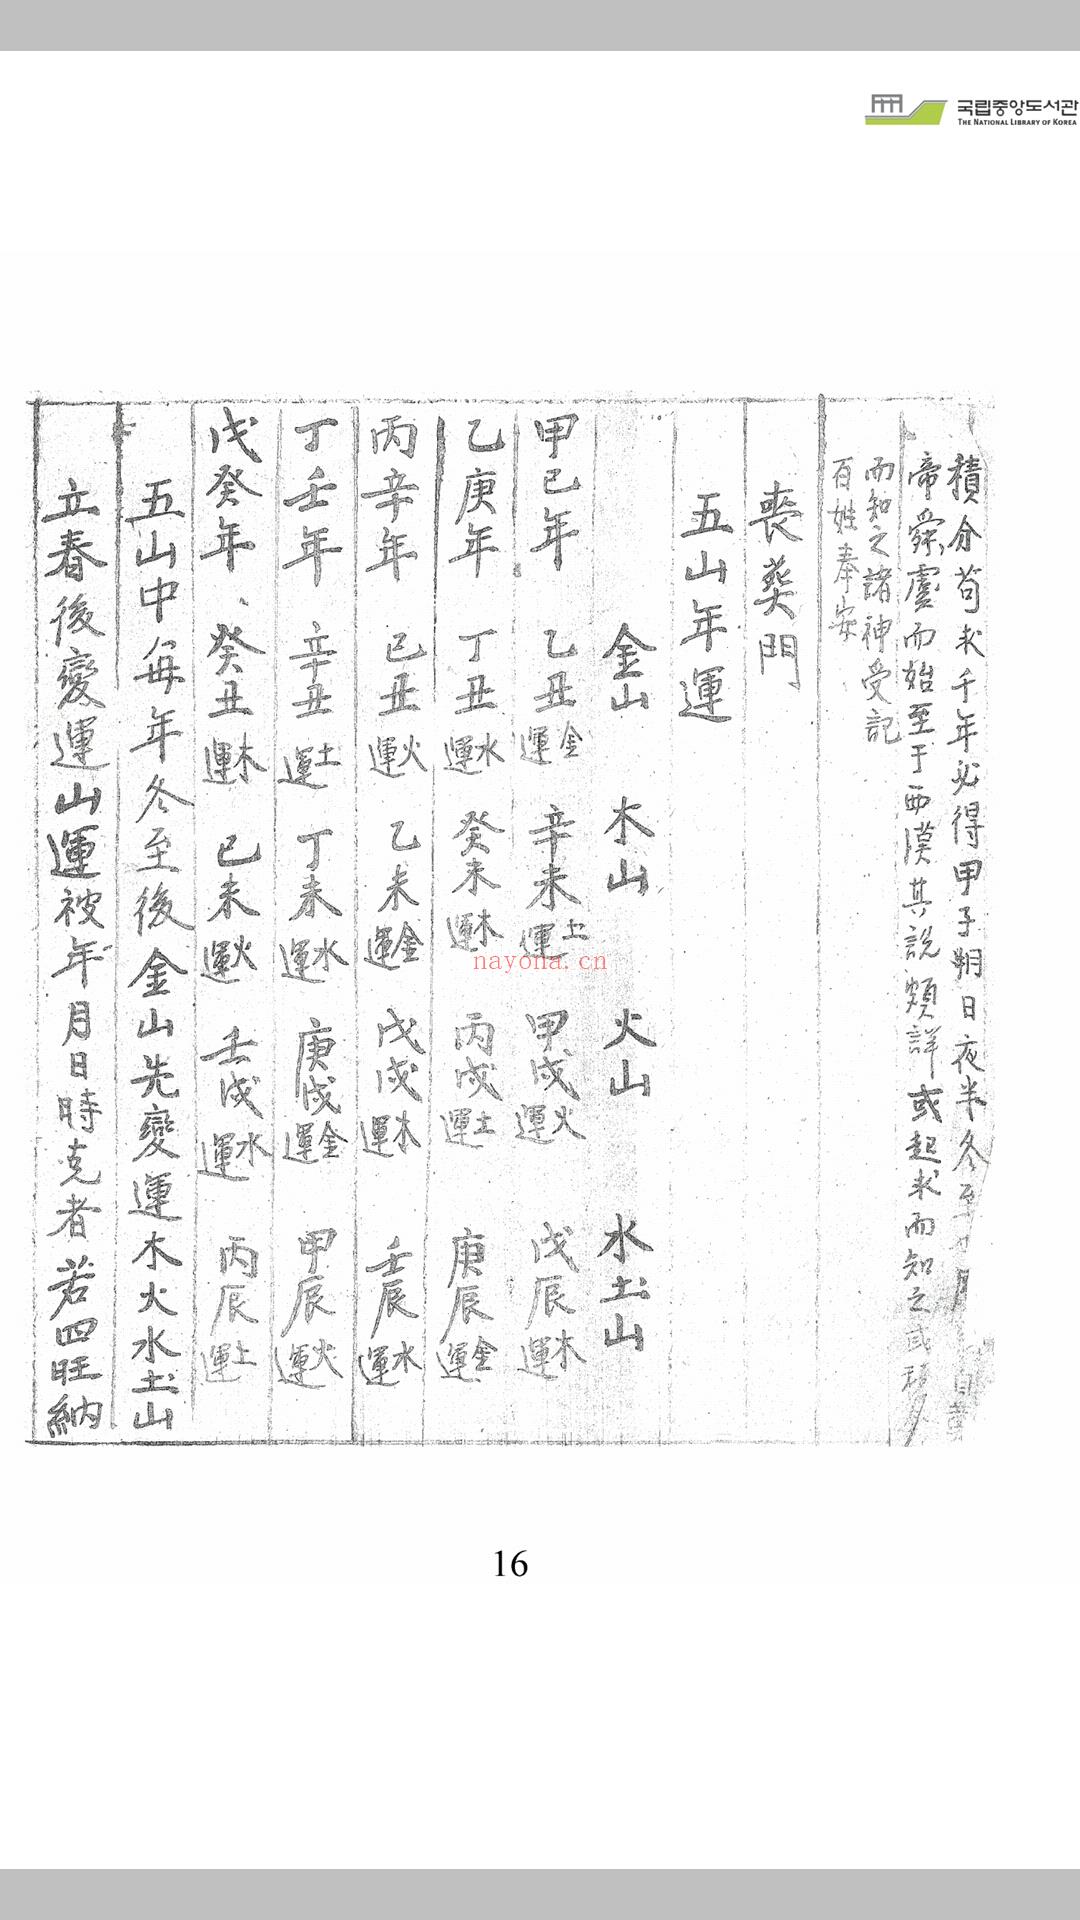 국립중앙도서관
THE NATIONAL LIBRARY OF KOREA
積分苟求千年必得甲子朔日夜半冬至
帝舜虞而始至于西漢其說頗詳或起求而知之或
而知之諸神受記
百姓奉安
喪葬門
五山年運
金山 木山 火山 水土山
甲己年 乙丑金運 辛未土運 甲戌火運 戊辰木運
乙庚年 丁丑水運 癸未木運 丙戌土運 庚辰金運
丙辛年 己丑火運 乙未金運 戊戌木運 壬辰水運
丁壬年 辛丑土運 丁未水運 庚戌金運 甲辰火運
戊癸年 癸丑木運 己未火運 壬戌水運 丙辰土運
五山中每年冬至後金山先變運木火水土山
立春後變運山運被年月日時克者若四旺納
nayona.cn
16